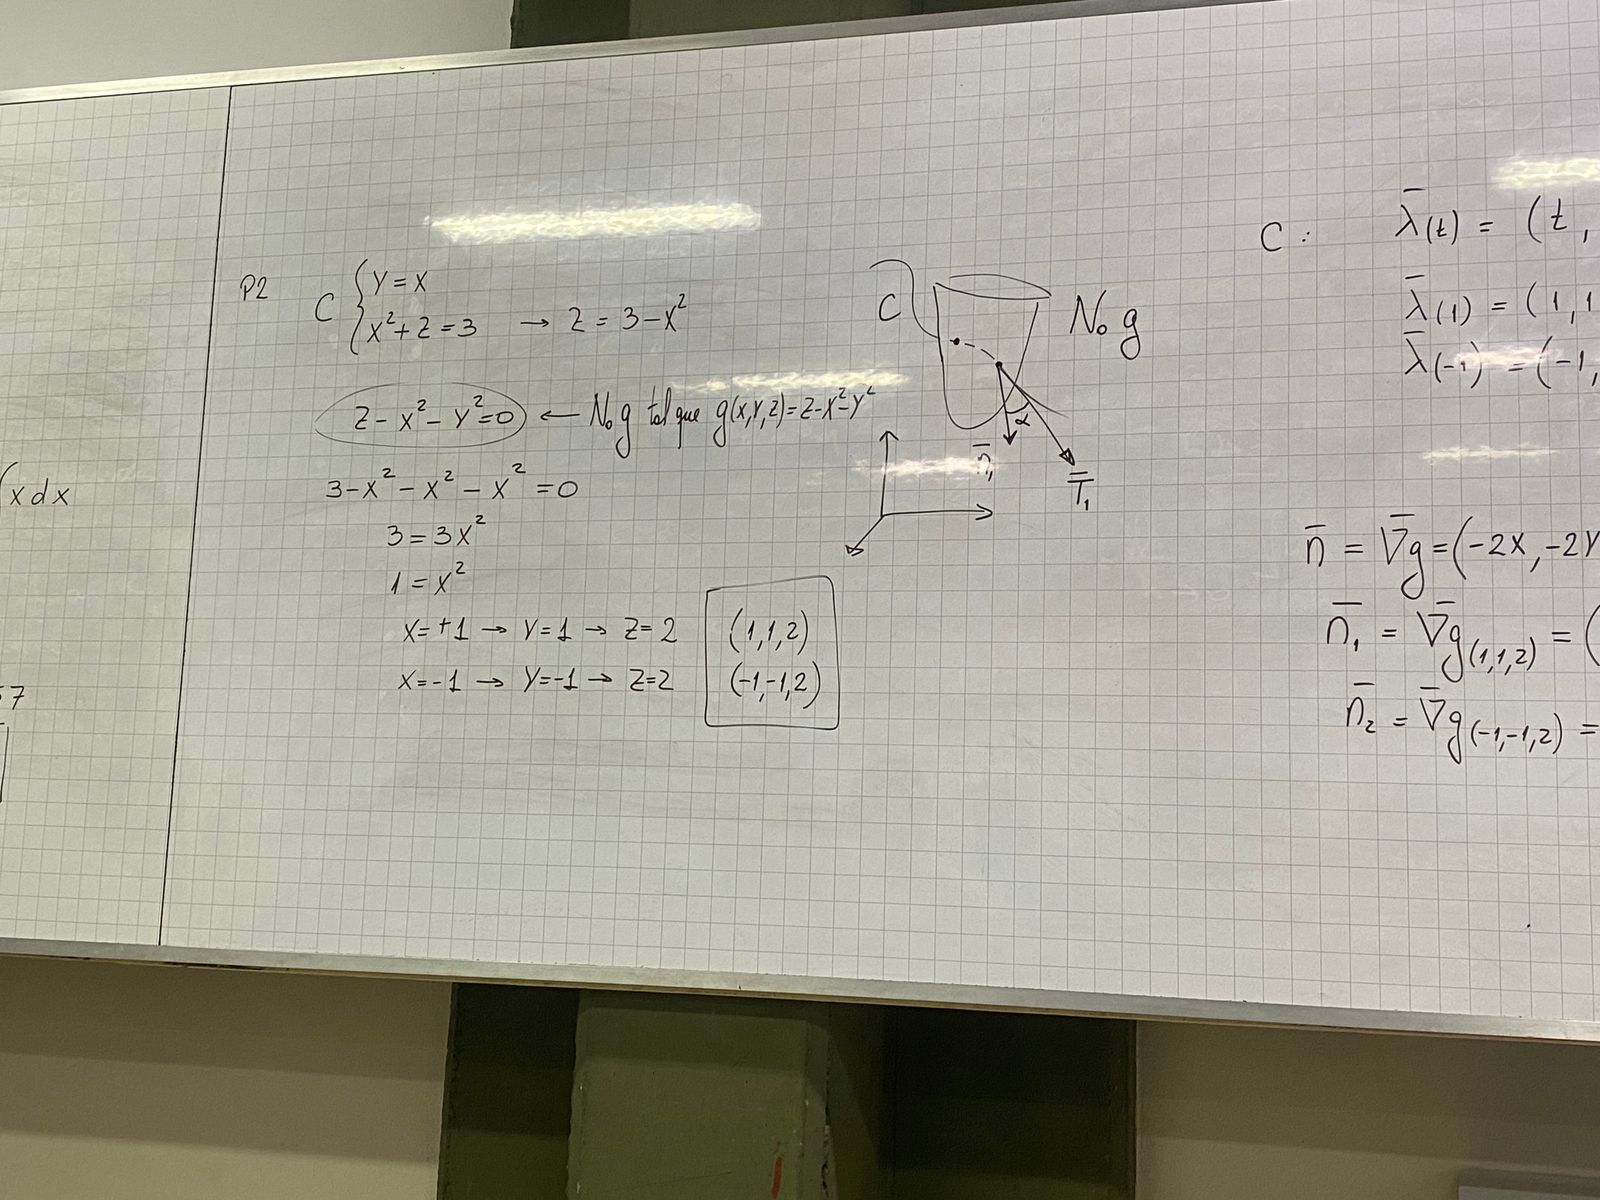 ∫x dx
57
P2
C { y = x
x² + z = 3 → z = 3 - x²
z - x² - y² = 0 ← N₀g tal que g(x,y,z) = z - x² - y²
3 - x² - x² - x² = 0
3 = 3x²
1 = x²
x = +1 → y = 1 → z = 2
x = -1 → y = -1 → z = 2
(1,1,2)
(-1,-1,2)
C
N₀g
α
n̄₁
T̄₁
C : λ̄(t) = (t,
λ̄(1) = (1,1
λ̄(-1) = (-1,
n̄ = ∇̄g = (-2x, -2y
n̄₁ = ∇̄g(1,1,2) = (
n̄₂ = ∇̄g(-1,-1,2) =